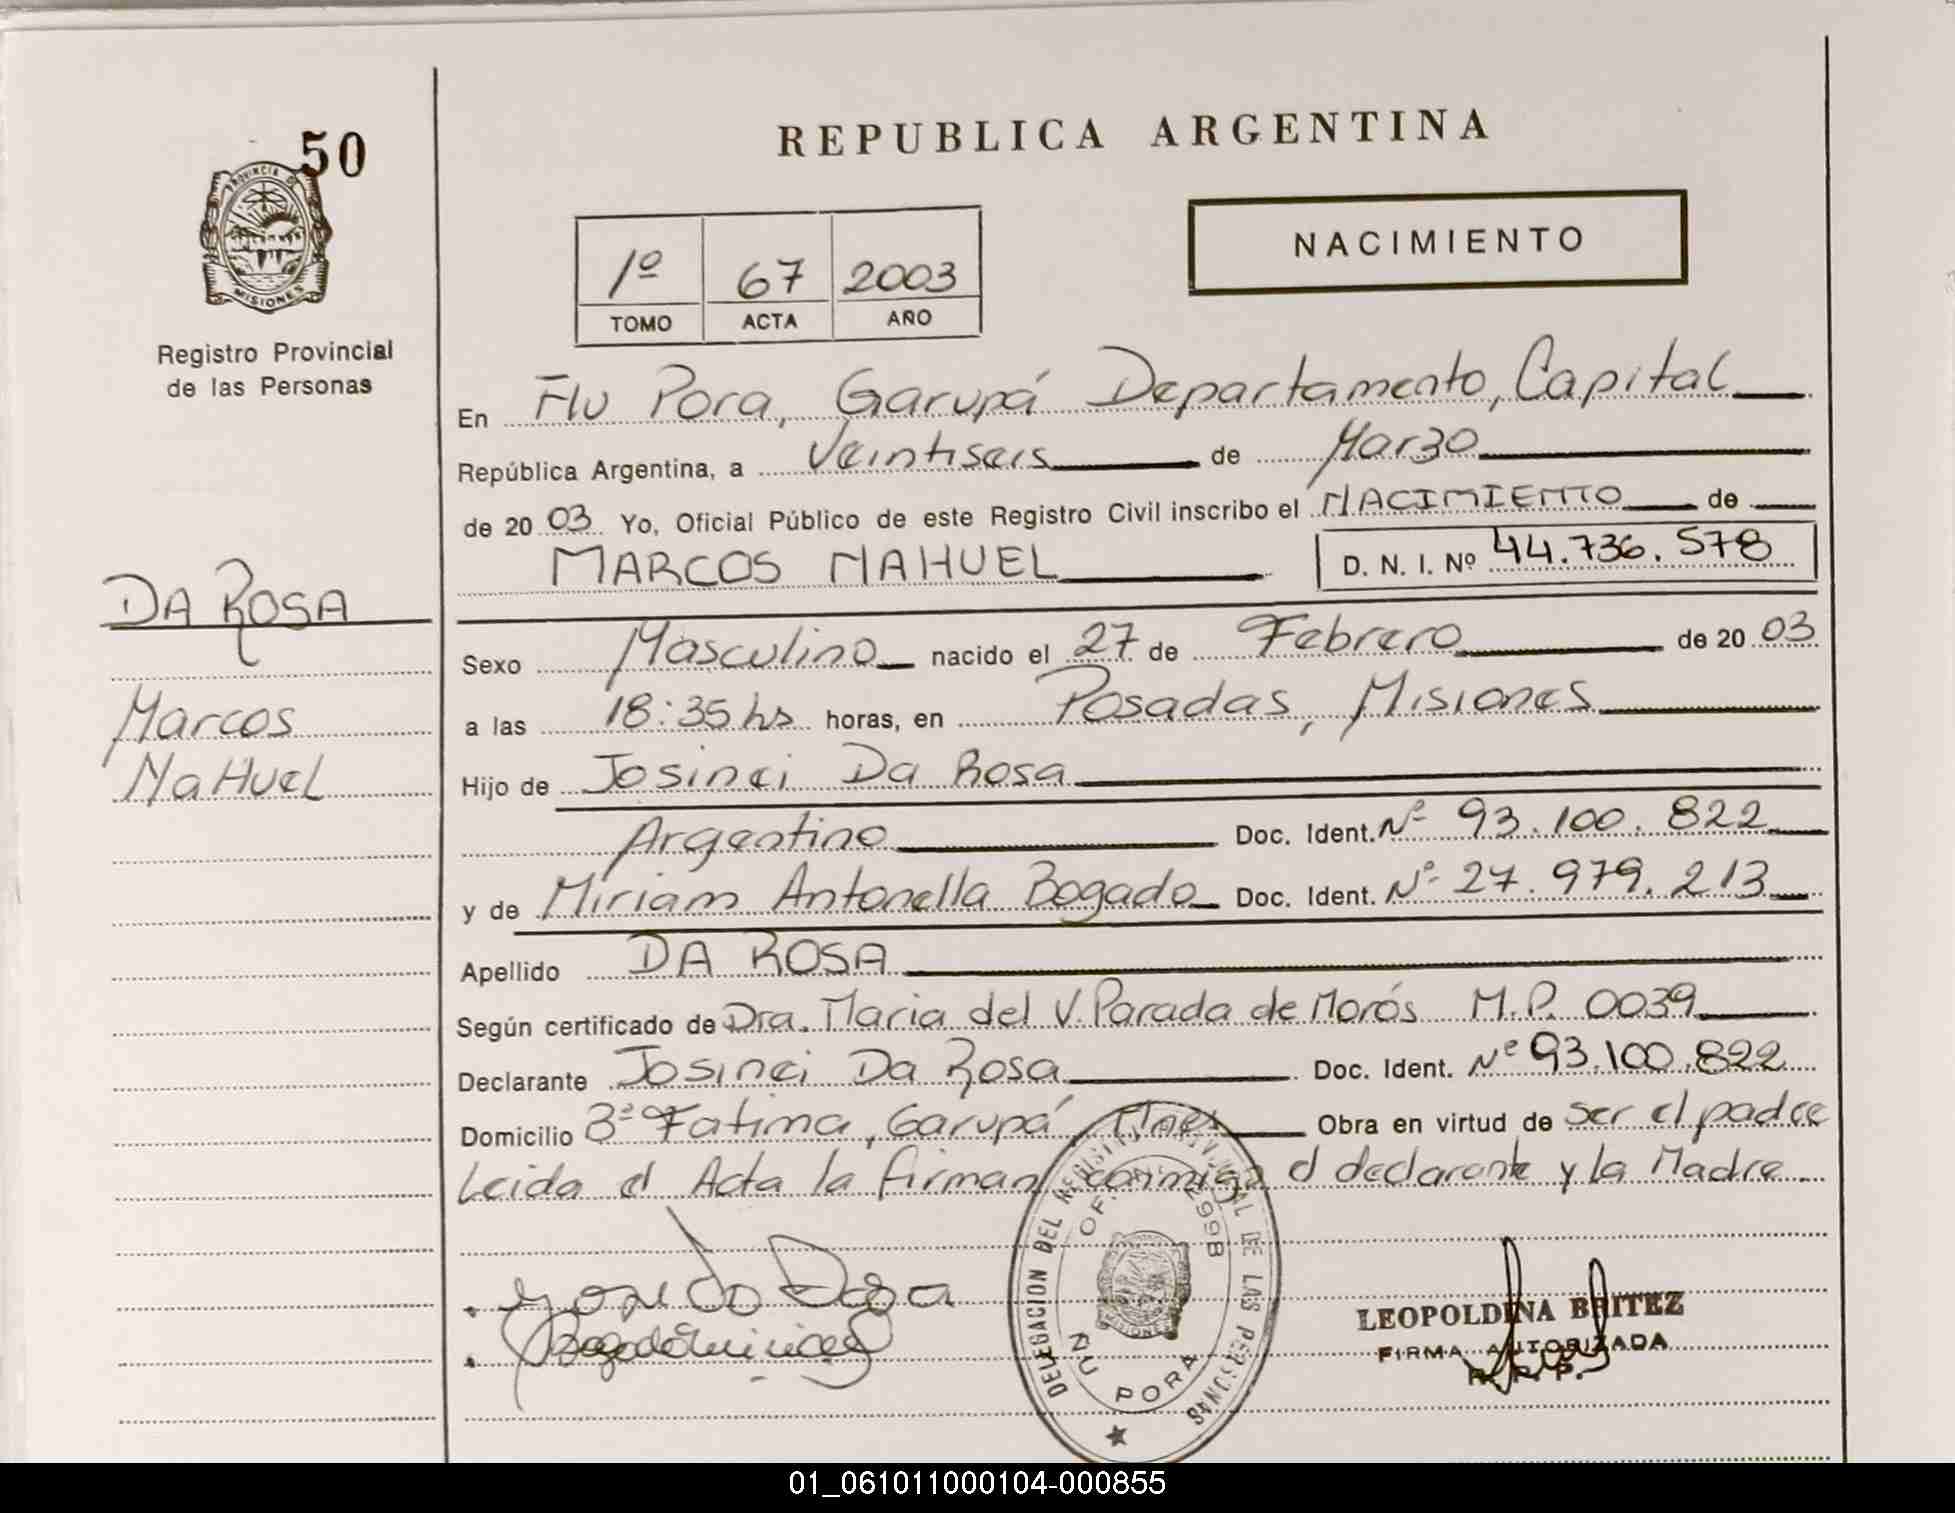 50
REPUBLICA ARGENTINA
PROVINCIA DE MISIONES
NACIMIENTO
1º 67 2003
TOMO ACTA AÑO
Registro Provincial
de las Personas
En Ñu Pora, Garupá Departamento, Capital
República Argentina, a Veintiseis de Marzo
de 2003 Yo, Oficial Público de este Registro Civil inscribo el NACIMIENTO de
MARCOS NAHUEL D. N. I. Nº 44.736.578
DA ROSA
Marcos
NaHuel
Sexo Masculino nacido el 27 de Febrero de 2003
a las 18:35 hs horas, en Posadas, Misiones
Hijo de Josinei Da Rosa
Argentino Doc. Ident. Nº 93.100.822
y de Miriam Antonella Bogado Doc. Ident. Nº 27.979.213
Apellido DA ROSA
Según certificado de Dra. Maria del V. Parada de Morós M.P. 0039
Declarante Josinei Da Rosa Doc. Ident. Nº 93.100.822
Domicilio Bº Fatima, Garupá, Mnes Obra en virtud de ser el padre
Leida el Acta la firman conmigo el declarante y la Madre
DELEGACION DEL REGISTRO PROVINCIAL DE LAS PERSONAS
MISIONES
ÑU PORA
LEOPOLDINA BRITEZ
FIRMA AUTORIZADA
R. P. P.
01_061011000104-000855